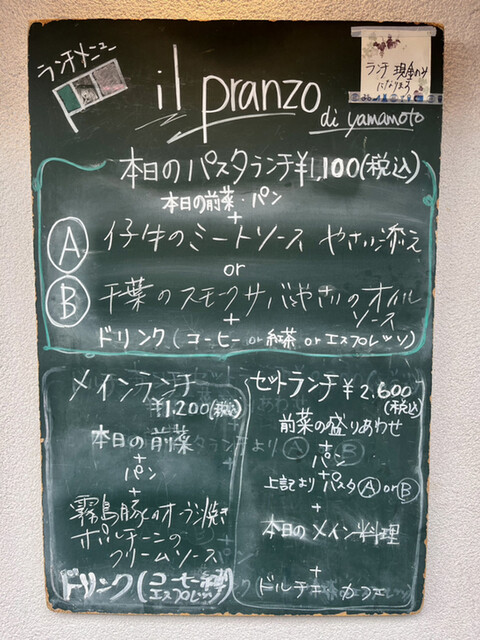 ランチメニュー
il pranzo
di yamamoto
ランチ 現金のみ
になります
本日のパスタランチ¥1,100(税込)
本日の前菜・パン
+
Ⓐ 仔牛のミートソース やさい添え
or
Ⓑ 千葉のスモークサバとやさいのオイル
ソース
+
ドリンク(コーヒー or 紅茶 or エスプレッソ)
メインランチ
¥1,200(税込)
本日の前菜
+
パン
+
霧島豚のオーブン焼き
ポルチーニの
クリームソース
ドリンク(コーヒー 紅茶
エスプレッソ)
セットランチ¥2,600
(税込)
前菜の盛りあわせ
+
パン
+
上記よりパスタⒶorⒷ
+
本日のメイン料理
+
ドルチェ カフェ